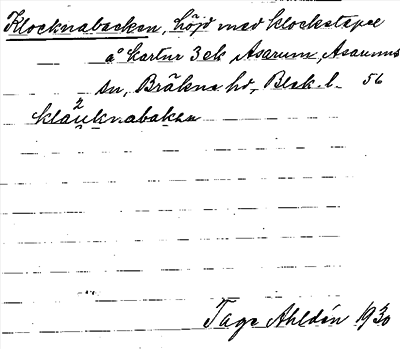 Klocknabacken, höjd med klockstapel
å kartur 3 ek Asarum, Asarums
sn, Bräkne hd, Blek. l. 56
klåu²knabakan
Tage Ahldén 1930